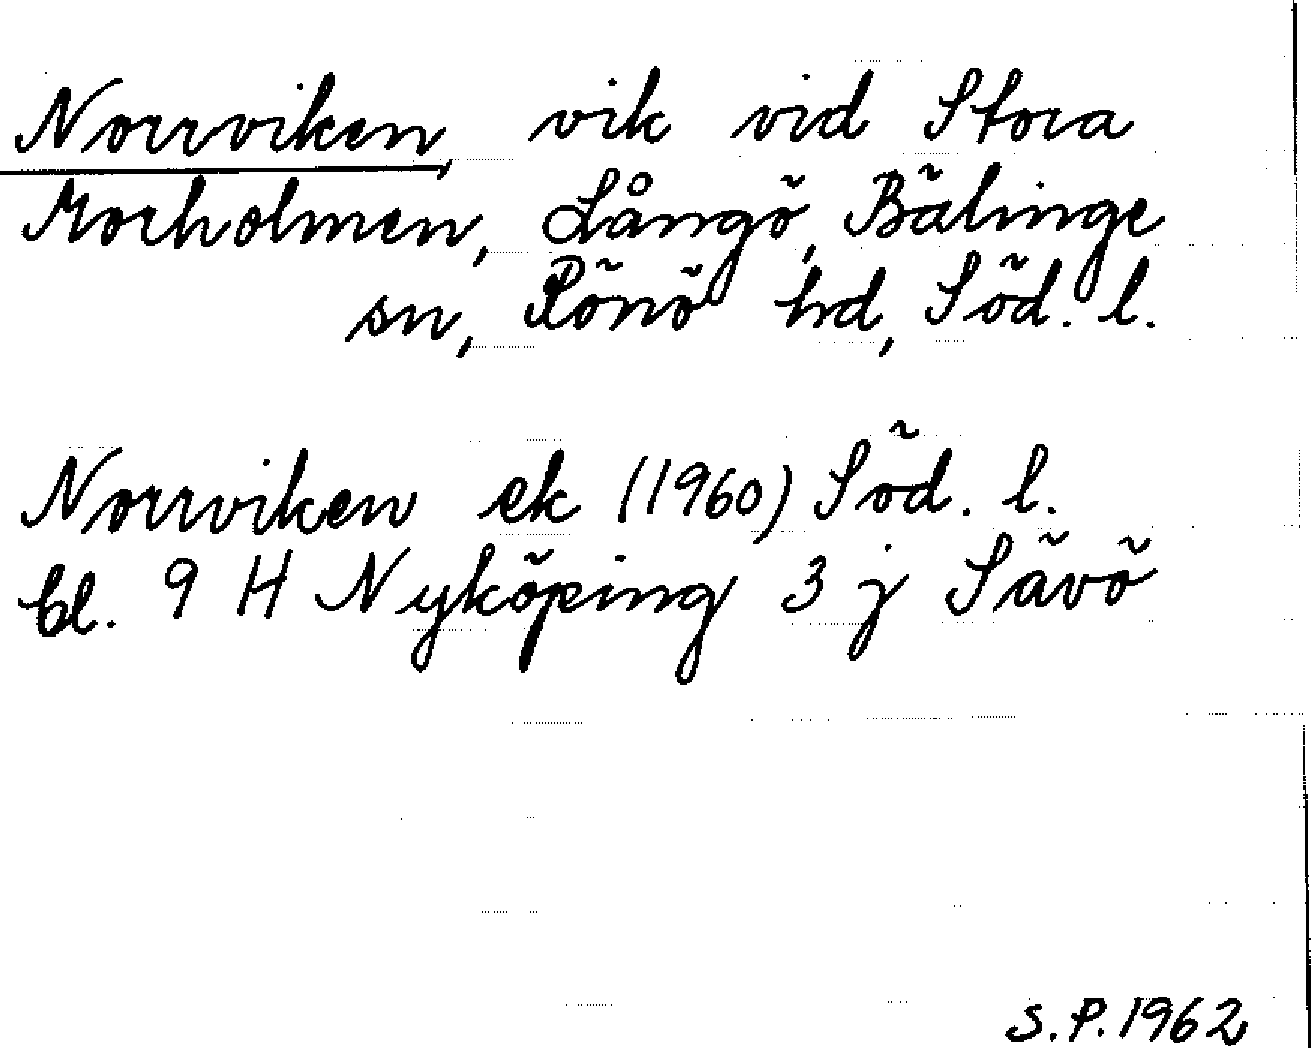 Norrviken, vik vid Stora
Morholmen, Långö, Bälinge
sn, Rönö hd, Söd. l.
Norrviken ek (1960) Söd. l.
bl. 9 H Nyköping 3 j Sävö
S.P. 1962